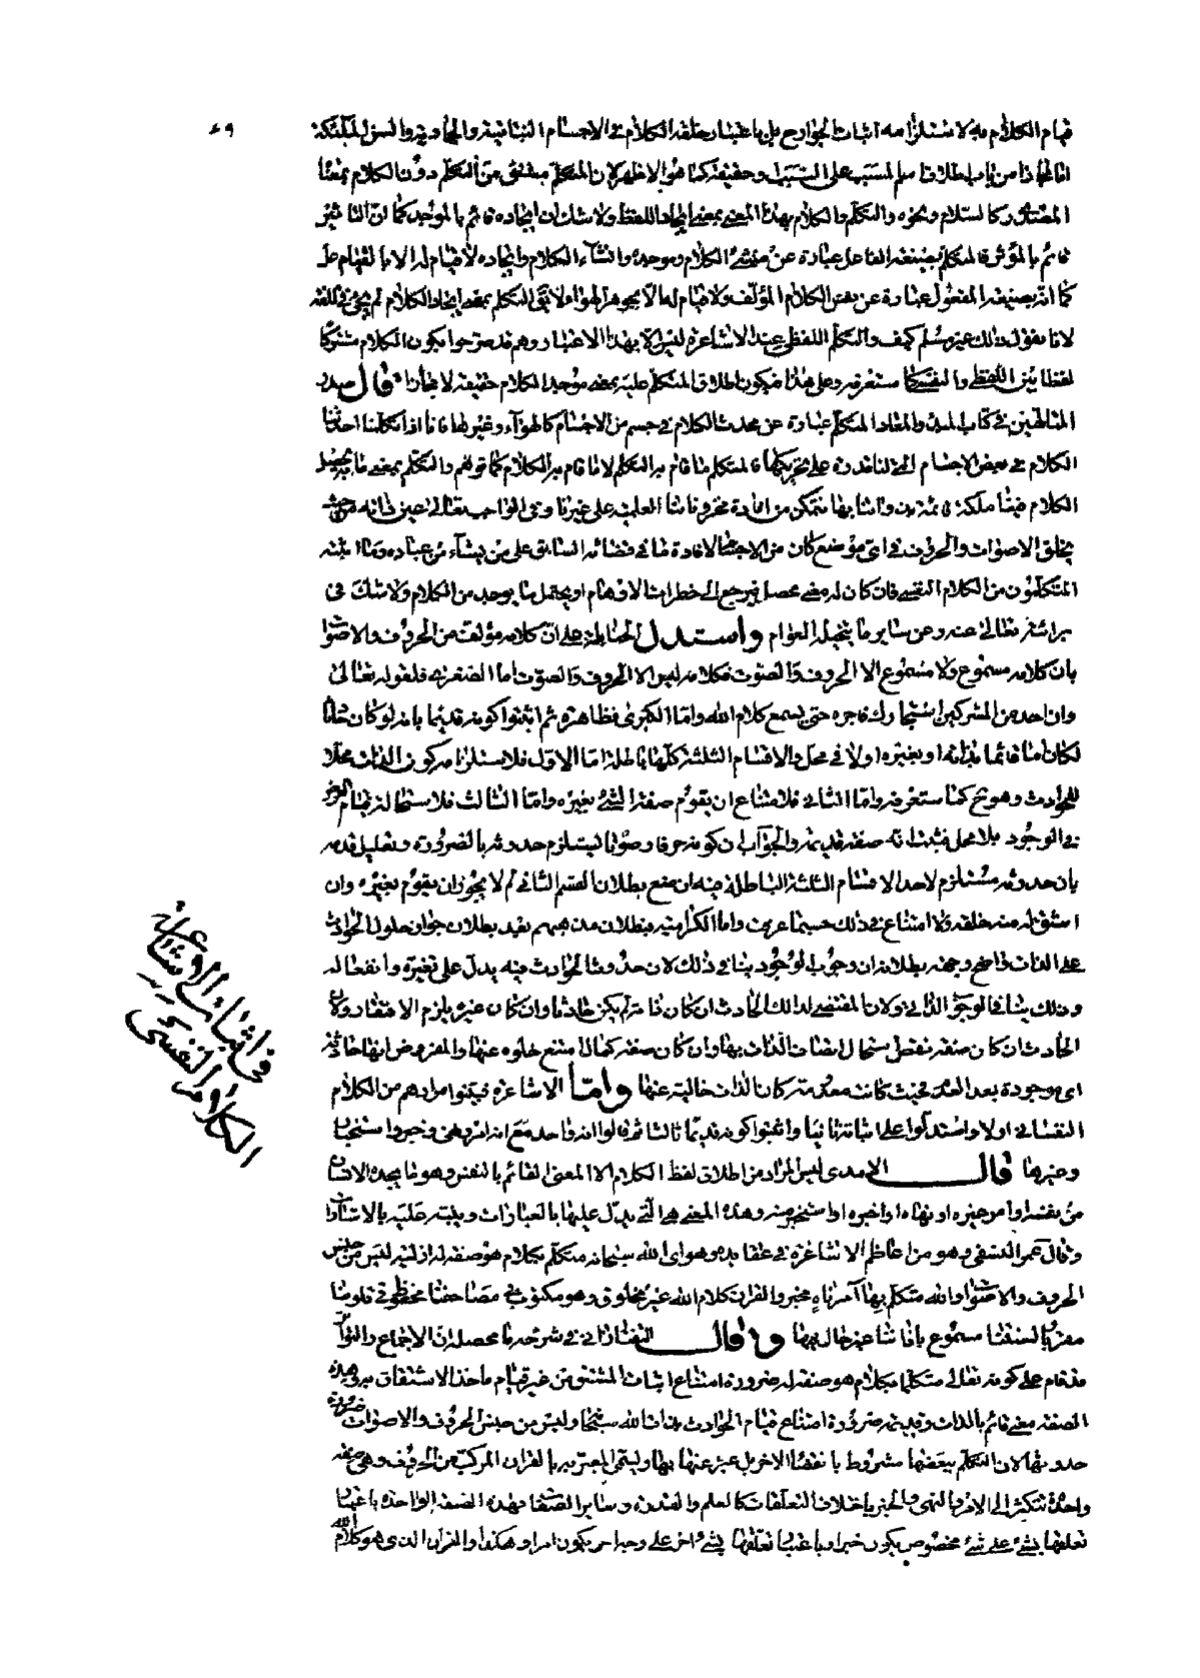 ٤٩
قيام الكلام به لا استلزامه اثبات الجوارح بل باعتبار خلقه الكلام في الاجسام النباتية والجمادية والسن الملئكة
اما مجازا من باب اطلاق اسم المسبب على السبب او حقيقة كما هو الاظهر لان المتكلم مشتق من التكلم دون الكلام بمعنا
المصدر كالسلام ونحوه والتكلم والكلام بهذا المعنى بمعنى ايجاد اللفظ ولا شك ان ايجاده قائم بالموجد كما ان التاثير
قائم بالمؤثر فالمتكلم بصيغة الفاعل عبارة عن منشئ الكلام وموجده وانشاء الكلام وايجاده لا قيام له الا بالفهام
كما انه بصيغة المفعول عبارة عن نفس الكلام المؤلف ولا قيام له الا بجوهر الهواء ولا يقال التكلم بمعنى ايجاد الكلام لم يجئ في اللغة
لانا نقول ذلك غير مسلم كيف والتكلم اللفظي عند الاشاعرة ليس الا بهذا الاعتبار وهم قد صرحوا بكون الكلام مشتركا
لفظا بين اللفظي والنفسي كما ستعرفه وعلى هذا فيكون اطلاق المتكلم عليه بمعنى موجد الكلام حقيقة لا مجازا قال صدر
المتالهين في كتاب المبدء والمعاد المتكلم عبارة عن محدث الكلام في جسم من الاجسام كالهواء وغيرها فانا اذا تكلمنا احدثنا
الكلام في بعض الاجسام التي لنا قدرة على تحريكها فالمتكلم ما قام به التكلم لا ما قام به الكلام كما توهم والتكلم بمعنى ما به يحصل
الكلام فينا ملكة قائمة بذواتنا بها نتمكن من افادة مخزوناتنا العلمية على غيرنا وفي الواجب تعالى عين ذاته من حيث
يخلق الاصوات والحروف في اي موضع كان من الاجسام لافادة ما في قضائه السابق على من يشاء من عباده وما اثبته
المتكلمون من الكلام النفسي فان كان له معنى محصل فيرجع الى خطرات الاوهام او يحتمل ما يوجد من الكلام ولا شك في
براءته تعالى عنه وعن ساير ما يتخيله العوام واستدل الحنابلة على ان كلامه مؤلف من الحروف والاصوات
بان كلامه مسموع ولا مسموع الا الحروف والصوت فكلامه ليس الا الحروف والصوت اما الصغرى فلقوله تعالى
وان احد من المشركين استجارك فاجره حتى يسمع كلام الله واما الكبرى فظاهرة ثم اثبتوا كونه قديما بانه لو كان حادثا
لكان اما قائما بذاته او بغيره او لا في محل والاقسام الثلثة كلها باطلة اما الاول فلاستلزامه كون الذات محلا
للحوادث وهو مح كما ستعرفه واما الثاني فلامتناع ان يقوم صفة الشئ بغيره واما الثالث فلاستحالة قيام العرض
في الوجود بلا محل فثبت انه صفة قديمة والجواب ان كونه حرفا وصوتا يستلزم حدوثه بالضرورة وتعليل قدمه
بان حدوثه مستلزم لاحد الاقسام الثلثة الباطلة فيه ان منع بطلان القسم الثاني لم لا يجوز ان يقوم بغيره وان
اشتق له منه خلقه ولا امتناع في ذلك حسبما عرفت واما الكرامية فبطلان مذهبهم بعد بطلان جواز حلول الحوادث
على الذات واضح وجهة بطلانه ان وجوب الوجود ينافي ذلك لان حدوث الحوادث فيه يدل على تغيره وانفعاله
وذلك ينافي الوجوب الذاتي ولان المقتضي لذلك الحادث ان كان ذاته لم يكن حادثا وان كان غيره يلزم الافتقار ولان
الحادث ان كان صفة نقص استحال اتصاف الذات بها وان كان صفة كمال امتنع خلوه عنها والمفروض انها حادثة
اي موجودة بعد العدم بحيث كانت معدومة كان الذات خالية عنها واما الاشاعرة فبينوا مرادهم من الكلام
النفساني اولا واستدلوا على اثباته ثانيا واثبتوا كونه قديما ثالثا ثم قالوا انه واحد مع انه امر ونهي وخبر واستخبار
وغيرها قال الامدي ليس المراد من اطلاق لفظ الكلام الا المعنى القائم بالنفس وهو ما يجده الانسان
من نفسه اذا امر غيره او نهاه او اخبره او استخبر منه وهذه المعنى هي التي يدل عليها بالعبارات وينبه عليه بالاشارات
وقال عمر النسفي وهو من اعاظم الاشاعرة في عقايده وهو اي الله سبحانه متكلم بكلام هو صفة له ازلية ليس من جنس
الحروف والاصوات والله متكلم بها آمر ناه مخبر والقران كلام الله غير مخلوق وهو مكتوب في مصاحفنا محفوظ في قلوبنا
مقرو بالسنتنا مسموع باذاننا غير حال فيها وقال التفتازاني في شرحه ما محصله ان الاجماع والتواتر
قد قام على كونه تعالى متكلما بكلام هو صفة له ضرورة امتناع اثبات المشتق من غير قيام ماخذ الاشتقاق به وهذه
الصفة معنى قائم بالذات وقديمة ضرورة امتناع قيام الحوادث بذات الله سبحانه وليس من جنس الحروف والاصوات ضرورة
حدوثها لان التكلم ببعضها مشروط بانقضاء الاخر بل عبر عنها بها وليسمى المعبر به بالقران المركب من الحروف وهي صفة
واحدة تتكثر الى الامر والنهي والخبر باختلاف التعلقات كالعلم والقدرة وساير الصفات فهذه الصفة الواحدة باعتبار
تعلقها بشئ على شئ مخصوص يكون خبرا وباعتبار تعلقها بشئ اخر على وجه اخر يكون امرا وهكذا والقران الذي هو كلام الله
في اثبات الاشاعرة
الكلام النفسي